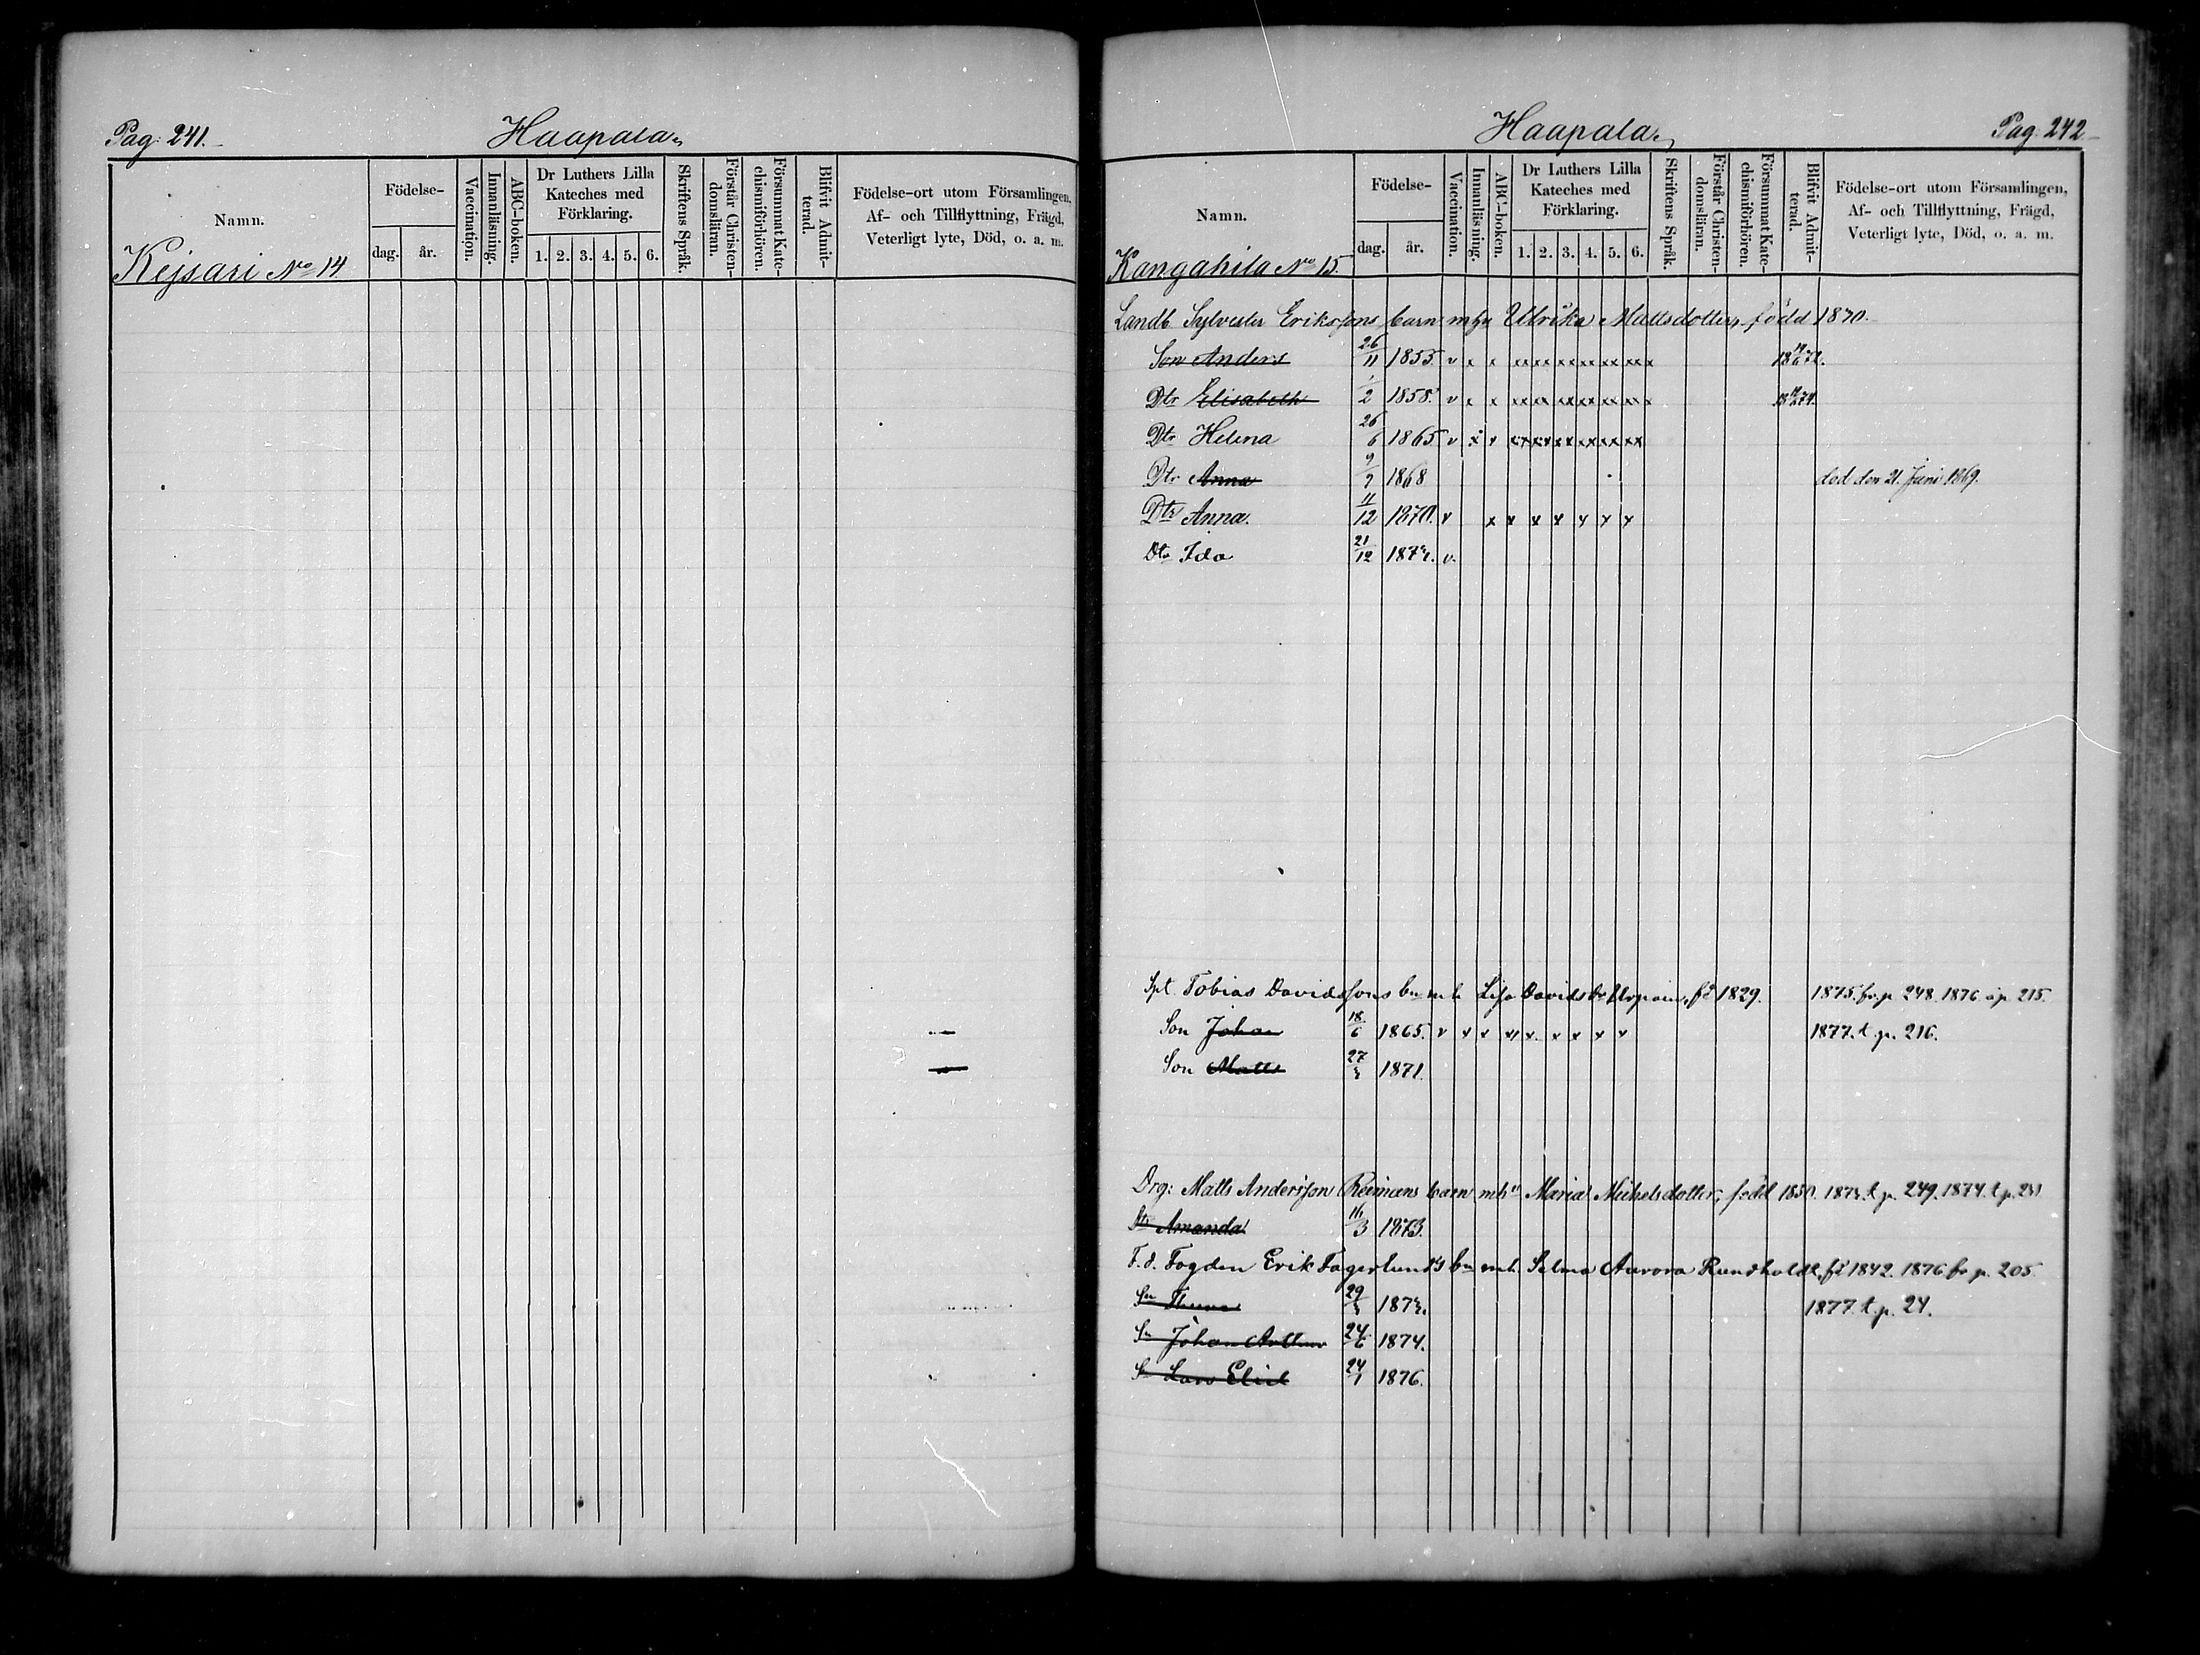 Pag. 241. Haapala
Namn. Födelse- dag. år. Vaccination. Innanläsning. ABC-boken. Dr Luthers Lilla Kateches med Förklaring. 1. 2. 3. 4. 5. 6. Skriftens Språk. Förstår Christendomsläran. Försummat Katechismiförhören. Blifvit Admitterad. Födelse-ort utom Församlingen, Af- och Tillflyttning, Frägd, Veterligt lyte, Död, o. a. m.
Kejsari No 14
Haapala Pag. 242
Namn. Födelse- dag. år. Vaccination. Innanläsning. ABC-boken. Dr Luthers Lilla Kateches med Förklaring. 1. 2. 3. 4. 5. 6. Skriftens Språk. Förstår Christendomsläran. Försummat Katechismiförhören. Blifvit Admitterad. Födelse-ort utom Församlingen, Af- och Tillflyttning, Frägd, Veterligt lyte, Död, o. a. m.
Kangahila No 15.
Landb. Sylvester Erikssons barn mhu Ulrika Mattsdotter, född 1830.
Son Anders 26/11 1855. v x x xx xx xx xx xx xx x
Dtr Elisabeth 1/2 1858. v x x xx xx xx xx xx xx x
Dtr Helena 26/6 1865 v x x xx xx xx xx xx xx
Dtr Anna 9/7 1868 död den 21. Juni 1869.
Dtr Anna. 11/12 1870. v x x x x x x x
Dtr Ida 21/12 1872. v.
Spt. Tobias Davidssons bn mh Lisa Davidsdr fö 1829. 1875. fr. p. 248. 1876 å p. 215.
Son Johan 18/6 1865. v x x x x x x x x 1877. t. p. 216.
Son Matts 27/2 1871.
Drg: Matts Andersson Reimans barn mhu Maria Michelsdotter, född 1850. t. p. 249. 1874. t. p. 231
Dtr Amanda 16/3 1873.
F. d. Fogden Erik Fagerlunds bn mh. Selma Aurora Rundholdt, fö 1842. 1876 fr p. 205.
Sn Thure 29/2 1872. 1877. t. p. 24.
Sn Johan Arthur 24/6 1874.
Sn Lars Elid 24/1 1876.